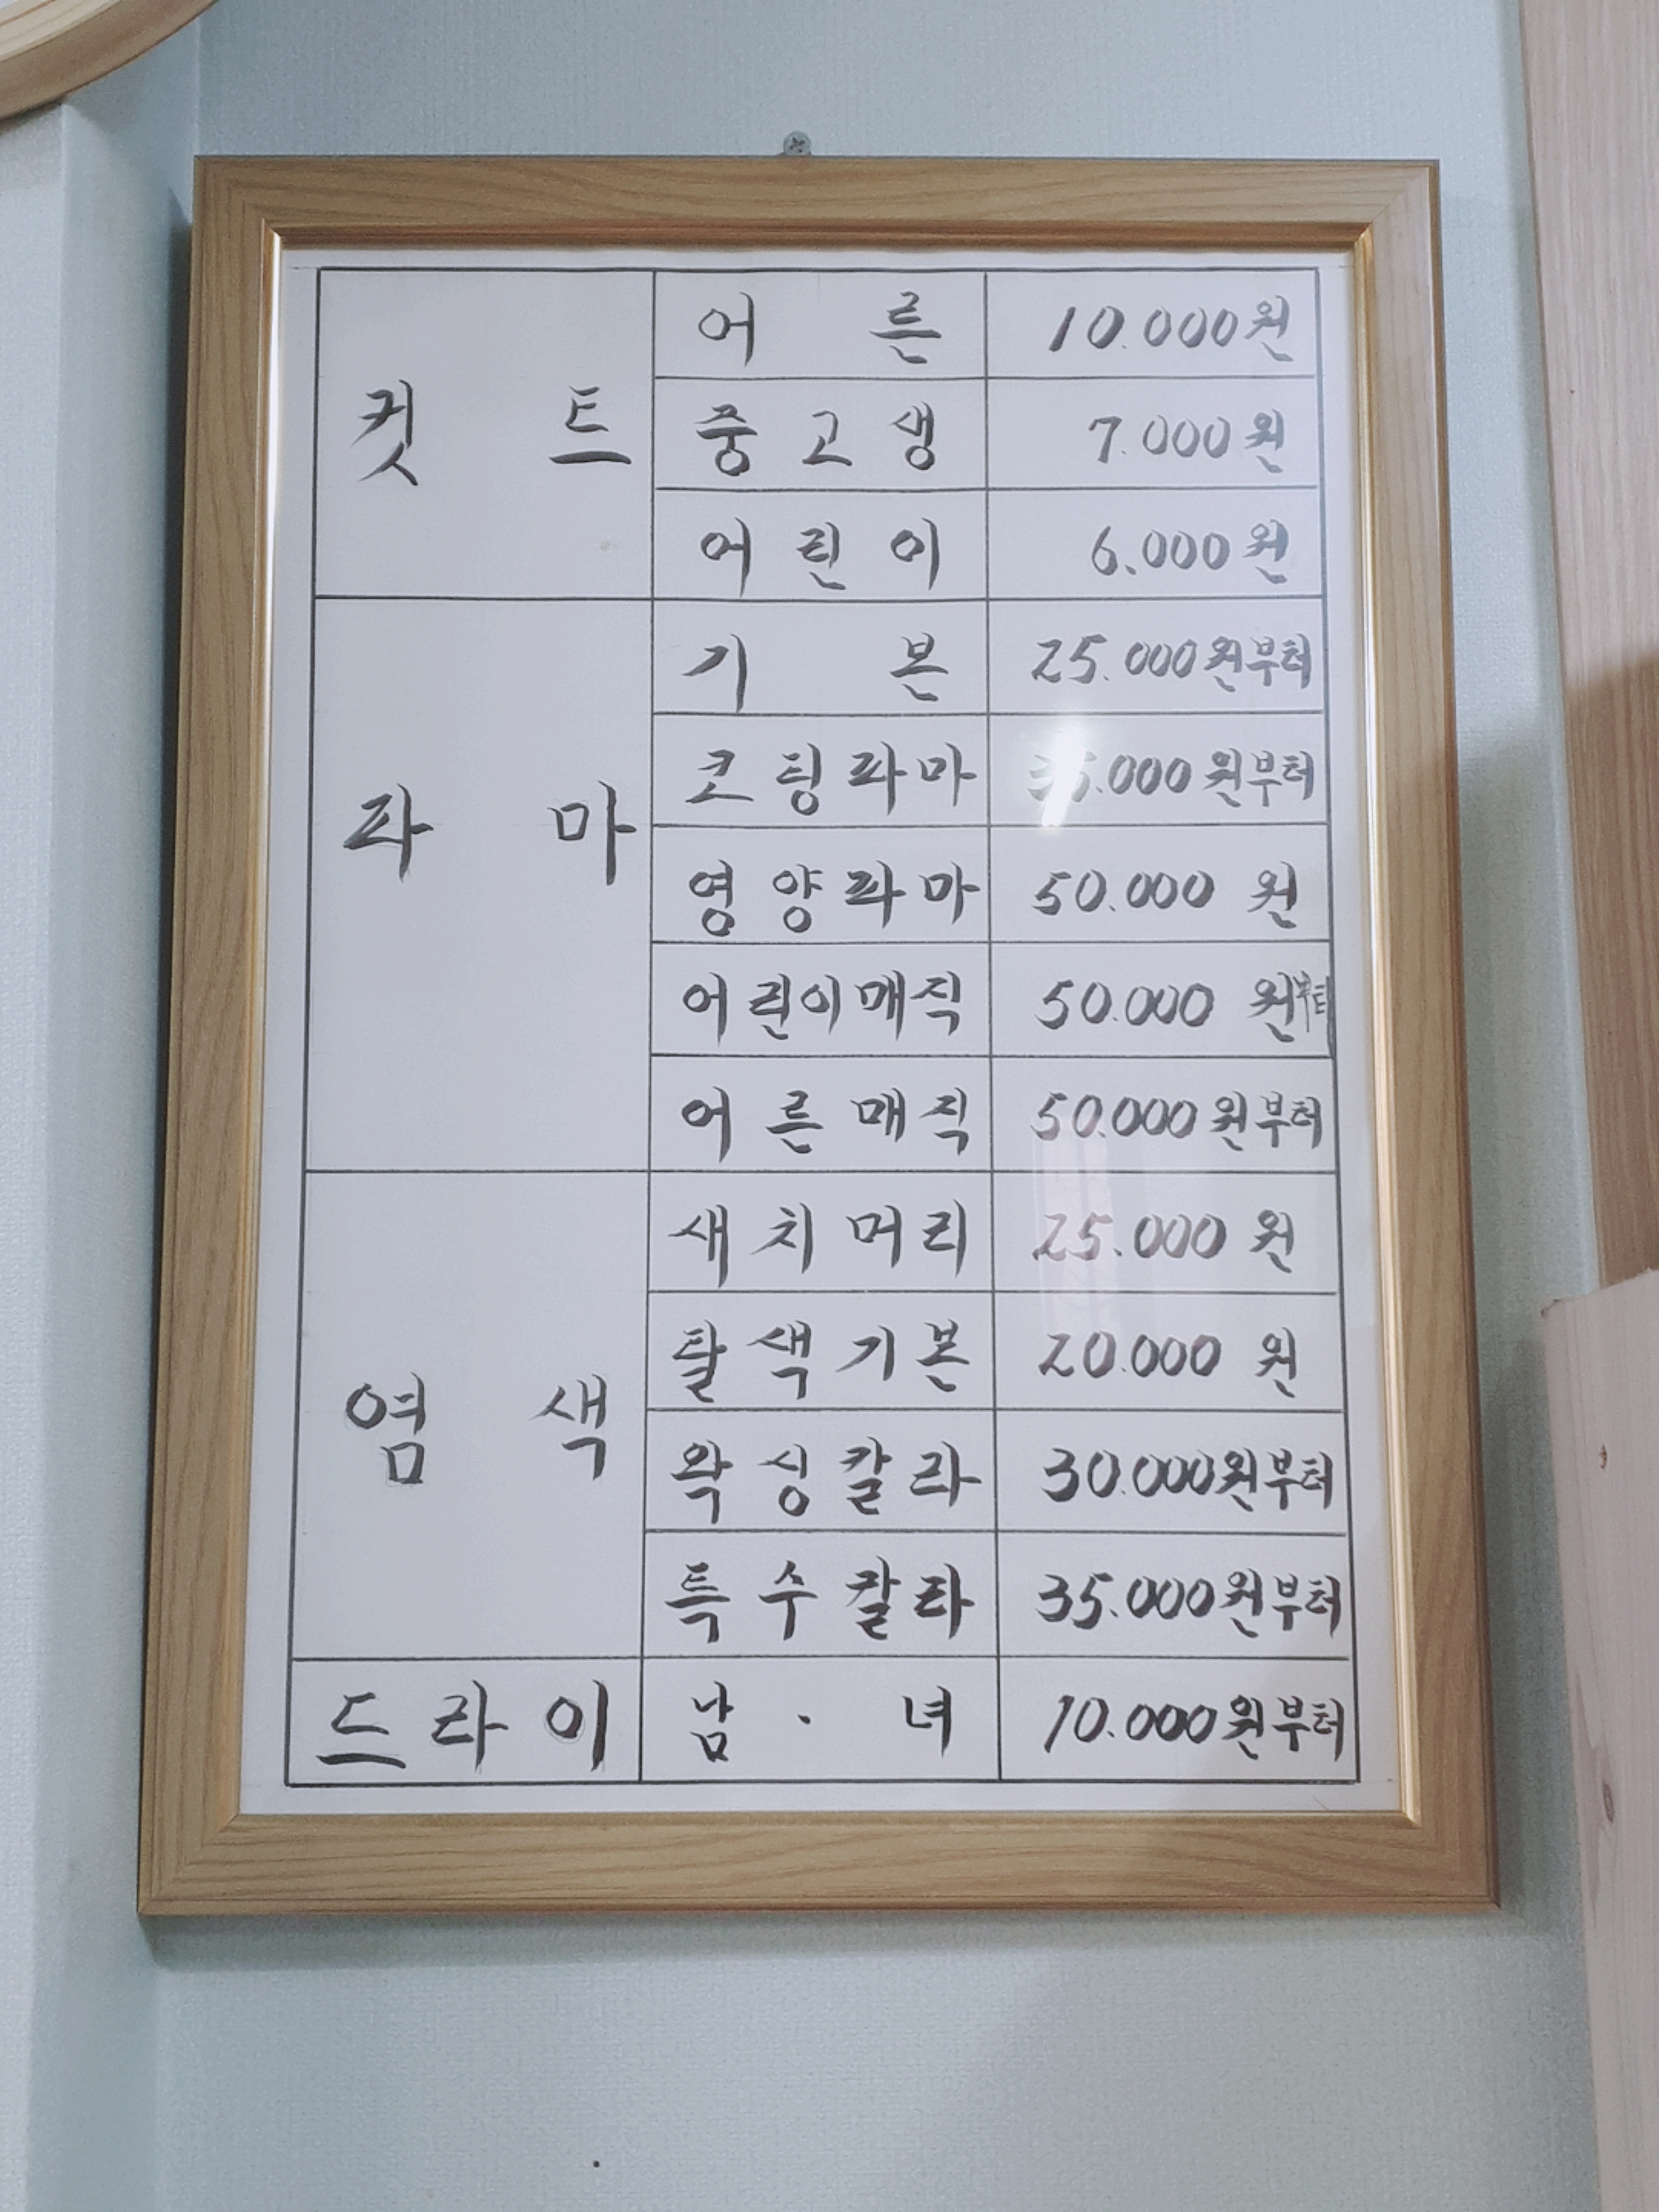 컷 트 어 른 10.000원
중 고 생 7.000원
어 린 이 6.000원
파 마 기 본 25.000원부터
코 팅 파 마 원부터
영 양 파 마 50.000 원
어 린 이 매 직 50.000 원부터
어 른 매 직 50.000원부터
염 색 새 치 머 리 25.000 원
탈 색 기 본 20.000 원
왁 싱 칼 라 30.000원부터
특 수 칼 라 35.000원부터
드 라 이 남 · 녀 10.000원부터